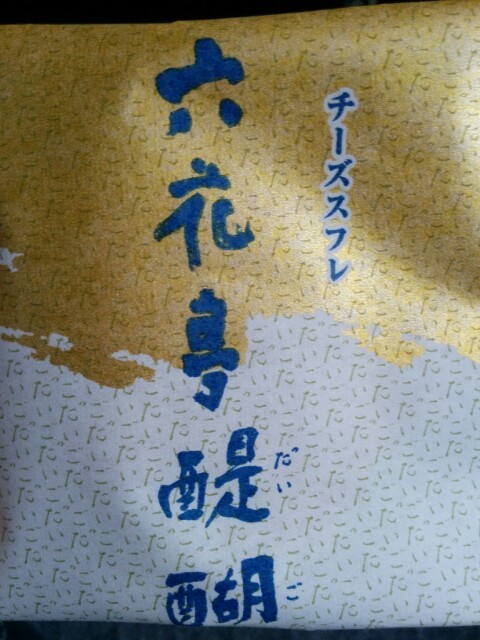 チーズスフレ
六花亭醍醐
だいご